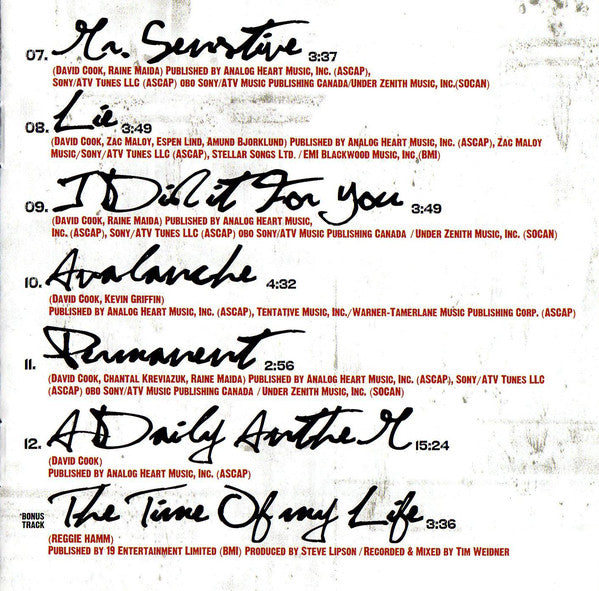 07. Mr. Sensitive 3:37
(David Cook, Raine Maida) Published by Analog Heart Music, Inc. (ASCAP),
Sony/ATV Tunes LLC (ASCAP) obo Sony/ATV Music Publishing Canada/Under Zenith Music, Inc.(SOCAN)
08. Lie 3:49
(David Cook, Zac Maloy, Espen Lind, Amund Bjorklund) Published by Analog Heart Music, Inc. (ASCAP), Zac Maloy
Music/Sony/ATV Tunes LLC (ASCAP), Stellar Songs Ltd. / EMI Blackwood Music, Inc (BMI)
09. I Did it For you 3:49
(David Cook, Raine Maida) Published by Analog Heart Music,
Inc. (ASCAP), Sony/ATV Tunes LLC (ASCAP) obo Sony/ATV Music Publishing Canada / Under Zenith Music, Inc. (SOCAN)
10. Avalanche 4:32
(David Cook, Kevin Griffin)
Published by Analog Heart Music, Inc. (ASCAP), Tentative Music, Inc./Warner-Tamerlane Music Publishing Corp. (ASCAP)
11. Permanent 2:56
(David Cook, Chantal Kreviazuk, Raine Maida) Published by Analog Heart Music, Inc. (ASCAP), Sony/ATV Tunes LLC
(ASCAP) obo Sony/ATV Music Publishing Canada / Under Zenith Music, Inc. (SOCAN)
12. A Daily AntheM 15:24
(David Cook)
Published by Analog Heart Music, Inc. (ASCAP)
*BONUS TRACK The Time Of my Life 3:36
(Reggie Hamm)
Published by 19 Entertainment Limited (BMI) Produced by Steve Lipson / Recorded & Mixed by Tim Weidner